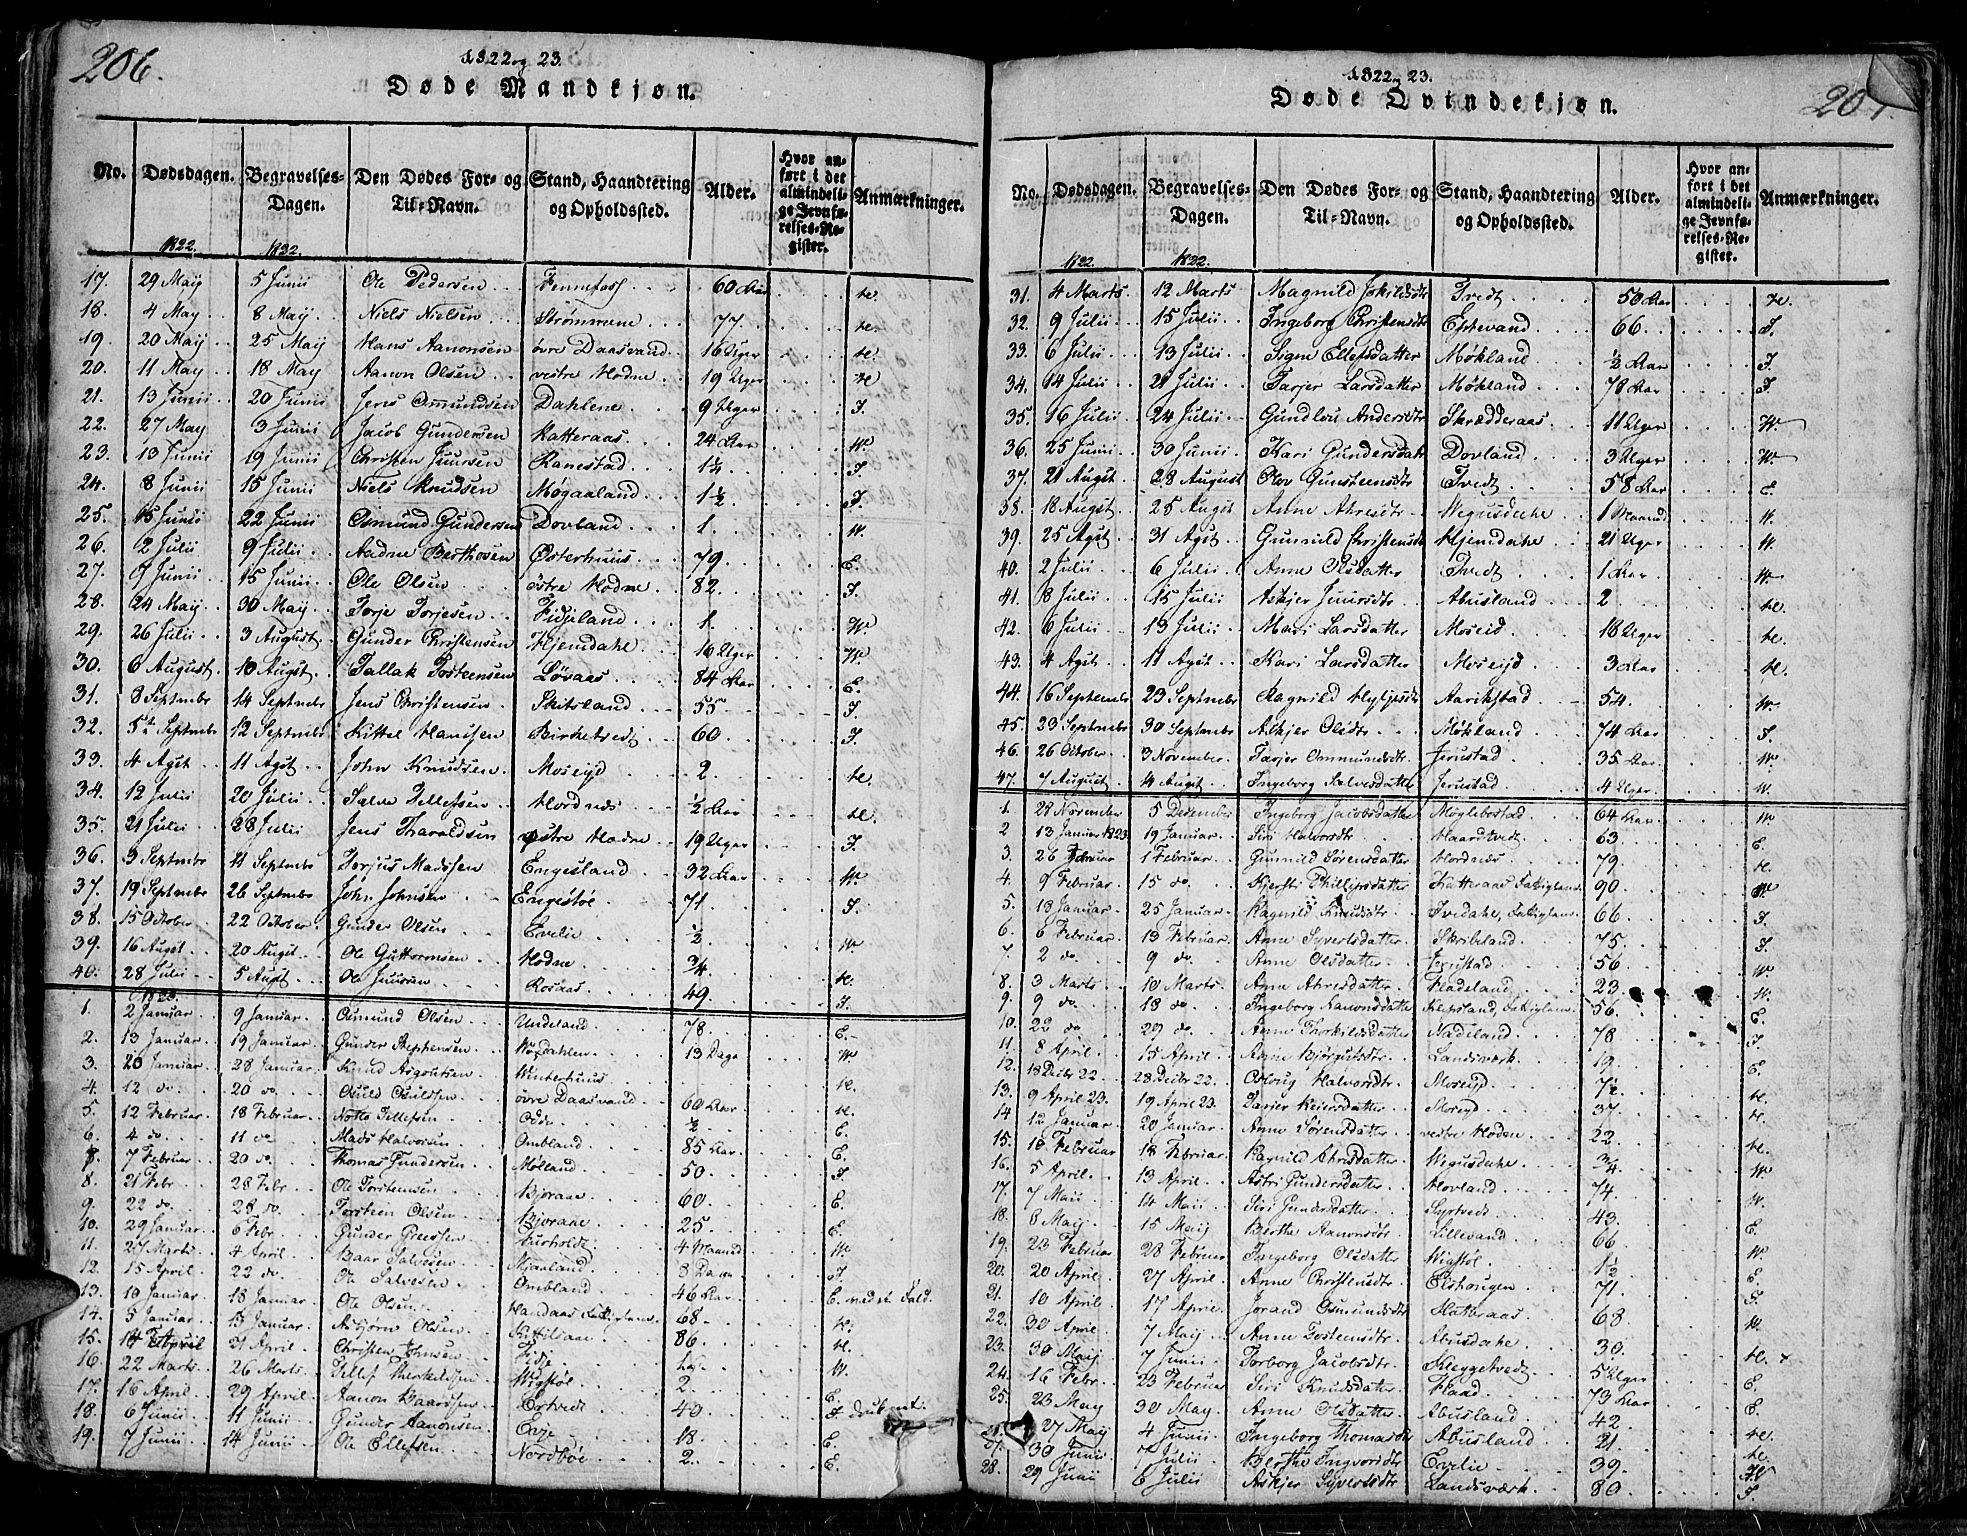 206.
1822 og 23.
Døde Mandkjøn.
No. Dødsdagen. Begravelses-Dagen. Den Dødes For- og Til-Navn. Stand, Haandtering og Opholdssted. Alder. Hvor anført i det almindelige Jevnførelses-Register. Anmærkninger.
1822. 1822.
17. 29 Maij 5 Junii Ole Pedersen Fennefoss 60 Aar H.
18. 4 May 8 Maij Niels Nielsen Strømmene 77 H.
19. 20 Maij 25 Maij Hans Aanonsen øvre Daasvand 16 Uger H.
20. 11 May 18 May Aanon Olsen vestre Hodne 19 Uger H
21. 13 Junii 20 Junii Jens Omundsen Dahlene 9 Uger I.
22. 27 May 3 Junii Jacob Gundersen Katteraas 24 Aar W.
23. 13 Junii 19 Junii Christen Juursen Ranestad 1¼ I.
24. 8 Junii 15 Junii Niels Knudsen Møgaaland 1½ I.
25. 15 Junii 22 Junii Osmund Gundersen Dovland 1. W.
26. 2 Julii 9 Julii Aadne Berthosen Østerhuus 79 E.
27. 9 Junii 15 Junii Ole Olsen østre Hodne 82. I.
28. 24 Maij 30 Maij Torje Torjesen Fidjeland 1. W.
29. 26 Julii 3 August Gunder Christensen Hjemdahl 16 Uger W.
30. 6 August 10 Augst Tallak Tosteensen Løvaas 84 Aar E.
31. 8 Septembr 14 Septembr Jens Christensen Skitsland 55 I.
32. 5te Septembr 12 Septembr Kittel Hansen Birketvedt 60 I.
33. 4 Agst 11 Agst John Knudsen Moseijd 2. H.
34. 12 Julii 20 Julii Salve Tellefsen Hordnes ½ Aar H.
35. 21 Julii 28 Julii Jens Tharaldsen østre Hodne 19 Uger I.
36. 3 Septembr 11 Septembr Torjus Madssen Engesland 32 Aar W.
37. 19 Septembr 26 Septembr John Johnsen Engestøl 71 I.
38. 15 October 22 October Gunder Olsen Evelie ½ W
39. 16 Augst 20 Augst Ole Guttormsen Hodne ¾ H.
40. 28 Julii 5 Augst Ole Juursen Rosaas 49. I.
1823.
1. 2 Januar 9 Januar Osmund Olsen Undeland 78. E.
2. 13 Januar 19 Januar Gunder Stephensen 13 Dage W.
3. 20 Januar 28 Januar Knud Asgoutsen Winterhuus H.
4. 12 do 20 do øvre Daasvand 60 Aar
5. 12 Februar 18 Februar Notto Tellefsen Odde ½ H.
6. 4 do. 11 do Mads Halvorsen Ombland 85 Aar E.
7. 7 Februar 20 do Thomas Gundersen Mølland 50. E.
8. 21 Febr 28 Febr Ole Torstensen Bjoraae 60. I.
9. 22 do. 28 do. Torsten Olsen Bjorane 25 E.
10. 29 Januar 6 Febr. Gunder Furholdt 4 Maaned E.
11. 27 Marts 4 April Baar Salvesen 8 Dage W.
12. 15 April 22 do. Ole Salvesen Ombland 46 Aar I.
13. 10 Januar 18 Januar Ole Olsen 68. E.
14. 5 Januar 13 Januar Asbjørn Olsen 86. H.
15. 14 21 April Christen Johnsen Fidje H.
16. 22 Marts 26 Marts Tellef Therkildsen Wigstøl 2. W.
17. 16 April 29 April Aanon Baardsen Eertvedt 40 E.
18. 6 Junii 11 Junii Gunder Aanonsen Evje 18. I druknet.
19. 7 Junii 14 Junii Ole Ellefsen Nordbøe 2. E.
207.
1822 23.
Døde Qvindekjøn.
No. Dødsdagen. Begravelses-Dagen. Den Dødes For- og Til-Navn. Stand, Haandtering og Opholdssted. Alder. Hvor anført i det almindelige Jevnførelses-Register. Anmærkninger.
1822. 1822.
31. 4 Marts 12 Marts Magnild Joskildsdtr Tvedt 50 Aar H.
32. 9 Julii 15 Julii Ingeborg Christensdtr Eptevand 66 I.
33. 6 Julii 13 Julii Signe Ellefsdatter Møkland ½ Aar I.
34. 14 Julii 21 Julii Tarjer Larsdatter Møkland 78 Aar I
35. 16 Julii 24 Julii Gundlou Andersdtr Skrædderaas 11 Uger W
36. 25 Juni 30 Junii Kari Gundersdatr Dovland 3 Uger W.
37. 21 Augst 28 August Olov Gunsteensdtr Tvedt 58 Aar E.
38. 18 Augst 25 Augst Anne Ahresdtr Wegusdahl 1 Maaned W.
39. 25 Agst 31 Agst Gunnild Christensdtr Hjemdahl 21 Uger W.
40. 2 Julii 6 Julii Anne Olsdatter Tvedt 1 Aar W
41. 8 Julii 15 Julii Askjer Juursdtr Abusland 2 H.
42. 6 Julii 13 Julii Mari Larsdatter Moseid 18 Uger H.
43. 4 Agst 11 Agst Kari Larsdatter Moseijd 3 Aar H.
44. 16 Septembr 23 Septembr Ragnild Aarikstad 54. W.
45. 23 Septembr 30 Septembr Askjer Olsdtr Møkland 74 Aar I.
46. 26 October 3 November Tarjer Ommundsdtr Jerustad 35 Aar W.
47. 7 August 14 Augst Ingeborg Salvesdatter Jerustad 4 Uger W.
1. 28 November 5 December Ingeborg Jacobsdatter Møglebostad 64 Aar W
2 13 Januar 1823 19 Januar Siri Halvorsdtr Haardtvedt 63. E.
3. 26 Februar 1 Februar Gunnild Sørensdatter Hordnes 79 H.
4. 9 Februar 15 do Kjersti Phillipsdatter Katteraas Fattiglem 90. W
5. 18 Januar 25 Januar Ragnild Knudsdtr Tvedahl, Fattiglem 66. I.
6. 6 Februar 13 Februar Anne Syvertsdatter Skribland 75. I.
7. 2 do 9 do. Anne Olsdatter Jerustad 56 W
8. 3 Marts 10 Marts Anne Ahresdatter Fladeland 23 W.
9. 9 do. 18 do Ingeborg Aanonsdatter Klepsland, Fattiglem 56. E.
10. 22 do 29 do Anne Thorkildsdatter Nadeland 78 I.
11. 8 April 15 April Anne Bjørgulsdtr Landsværk 19. E.
12. 18 Decbr 22 28 Decbr 22. Oslaug Halvorsdtr Moseijd 7½ H.
13. 9 April 23. 19 April 23. Tarjer Reiersdatter Moseyd 37. H.
14 12 Januar 20 Januar Anne Sørensdatter vestre Hoden 22. H.
15. 10 Februar 18 Februar Ragnild Ahresdatter Wegusdahl ¾ W
16. 5 April 13 April Astri Gundersdatter Hovland 74. W.
17. 7 Maii 14 Maii Siri Gundersdatter Syrtveds 43. E.
18. 8 Maij 15 Maij Berthe Aanonsdtr Lillevand 66 W.
19. 23 Februar 28 Februar Ingeborg Olsdatter Wigstøl 1½ E.
20. 20 April 27 April Anne Christensdtr Elshougen 71. I.
21. 10 April 17 April Jorand Osmundsdtr Hatteraas 68 W.
22. 30 April 7 Maij Anne Tostensdtr Abusdahl 30. H.
23. 30 Maij 7 Junii Torborg Jacobsdtr Kleggetvedt 5 Uger E.
24. 16 Febr. 23 Februar Siri Knudsdatter Flaad 73 Aar E.
25. 23 May 30 May Anne Olsdatter Abusland 42 H.
26. 27 Maij 4 Junii Ingeborg Thomasdtr Abusland 21 H.
27. 30 Junii 7 Julii Berthe Ingvorsdtr Evelie 39.
28. 29 Junii 6 Julii Askjer Syvertsdtr Landsværk 80. I.